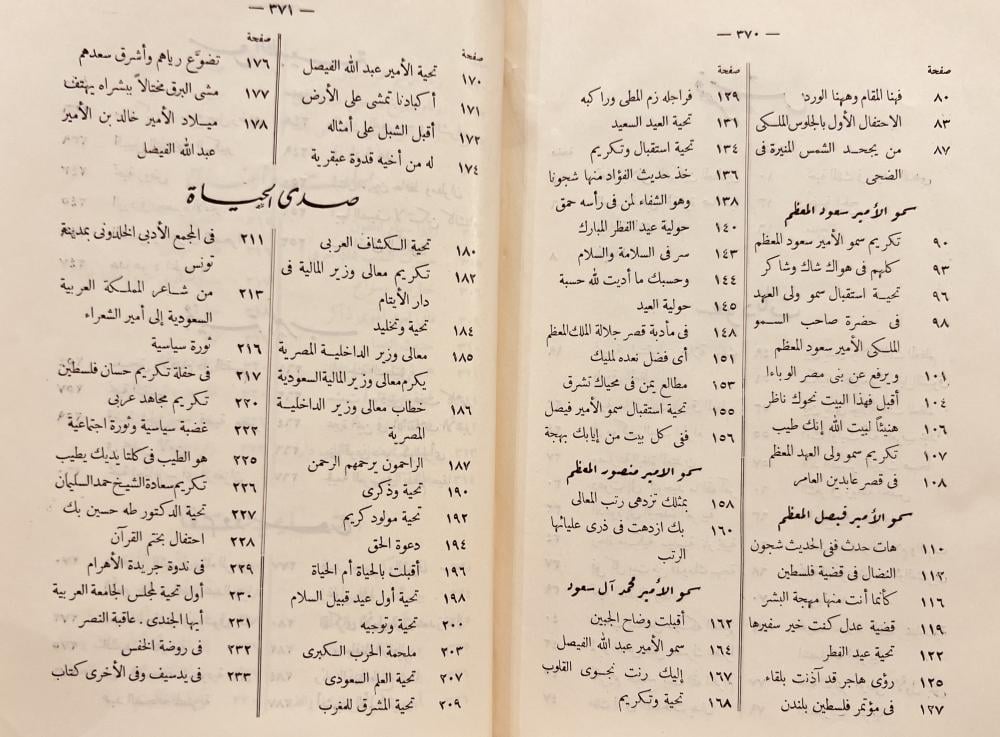 — ٣٧٠ —
صفحة
٨٠ فهنا المقام وههنا الورد
٨٣ الاحتفال الأول بالجلوس الملكى
٨٧ من يجحد الشمس المنيرة فى
الضحى
سمو الأمير سعود المعظم
٩٠ تكريم سمو الأمير سعود المعظم
٩٣ كلهم فى هواك شاك وشاكر
٩٦ تحيـة استقبال سمو ولى العهد
٩٨ فى حضرة صاحب السـمو
الملكى الأمير سعود المعظم
١٠١ ويرفع عن بنى مصر الوباءا
١٠٤ أقبل فهذا البيت نحوك ناظر
١٠٦ هنيئاً لبيت الله إنك طيب
١٠٧ تكريم سمو ولى العهد المعظم
١٠٨ فى قصر عابدين العامر
سمو الأمير فيصل المعظم
١١٠ هات حدث ففى الحديث شجون
١١٢ النضال فى قضية فلسطين
١١٦ كأنما أنت منها مهجة البشر
١١٩ قضية عدل كنت خير سفيرها
١٢٢ تحية عيد الفطر
١٢٥ رؤى هاجر قد آذنت بلقاء
١٢٧ فى مؤتمر فلسطين بلندن
صفحة
١٢٩ فراجله زم المطى وراكبه
١٣١ تحية العيد السعيد
١٣٤ تحية استقبال وتكريم
١٣٦ خذ حديث الفؤاد منها شجونا
١٣٨ وهو الشفاء لمن فى رأسه حمق
١٤٠ حولية عيد الفطر المبارك
١٤٣ سر فى السلامة والسلام
١٤٤ وحسبك ما أديت لله حسبة
١٤٥ حولية العيد
١٤٨ فى مأدبة قصر جلالة الملك المعظم
١٥١ أى فضل نعده لمليك
١٥٣ مطالع يمن فى محياك تشرق
١٥٥ تحية استقبال سمو الأمير فيصل
١٥٦ ففى كل بيت من إيابك بهجة
سمو الأمير منصور المعظم
١٥٨ بمثلك تزدهى رتب المعالى
١٦٠ بك ازدهت فى ذرى عليائها
الرتب
سمو الأمير محمد آل سعود
١٦٢ أقبلت وضاح الجبين
١٦٤ سمو الأمير عبد الله الفيصل
١٦٧ إليك رنت نجوى القلوب
١٦٨ تحية وتكريم
— ٣٧١ —
صفحة
١٧٠ تحية الأمير عبد الله الفيصل
١٧١ أكبادنا تمشى على الأرض
١٧٢ أقبل الشبل على أمثاله
١٧٤ له من أخيه قدوة عبقرية
صفحة
١٧٦ تضوَّع رياهم وأشرق سعدهم
١٧٧ مشى البرق مختالاً ببشراه يهتف
١٧٨ ميـلاد الأمير خالد بن الأمير
عبد الله الفيصل
صدى الحياة
١٨٠ تحية الكشاف العربى
١٨٢ تكريم معالى وزير المالية فى
دار الأيتام
١٨٤ تحية وتخليد
١٨٥ معالى وزير الداخليـة المصرية
يكرم معالى وزير المالية السعودية
١٨٦ خطاب معالى وزير الداخليـة
المصرية
١٨٧ الراحمون يرحمهم الرحمن
١٩٠ تحية وذكرى
١٩٢ تحية مولود كريم
١٩٤ دعوة الحق
١٩٦ أقبلت بالحياة أم الحياة
١٩٨ تحية أول عيد قبيل السلام
٢٠٠ تحية وتوجيه
٢٠٣ ملحمة الحرب الكبرى
٢٠٧ تحية العلم السعودى
٢٠٩ تحية المشرق للمغرب
٢١١ فى المجمع الأدبى الخلدونى بمدينة
تونس
٢١٣ من شـاعر المملكـة العربية
السعودية إلى أمير الشعراء
٢١٦ ثورة سياسية
٢١٧ فى حفلة تكريم حسان فلسطين
٢٢٠ تكريم مجاهد عربى
٢٢٢ غضبة سياسية وثورة اجتماعية
٢٢٥ هو الطيب فى كلتا يديك يطيب
٢٢٦ تكريم سعادة الشيخ حمد السليمان
٢٢٧ تحية الدكتور طه حسين بك
٢٢٨ احتفال بختم القرآن
٢٢٩ فى ندوة جريدة الأهرام
٢٣٠ أول تحية لمجلس الجامعة العربية
٢٣١ أيها الجندى. عاقبة النصر
٢٣٢ فى روضة الخفس
٢٣٣ فى يدسيف وفى الأخرى كتاب